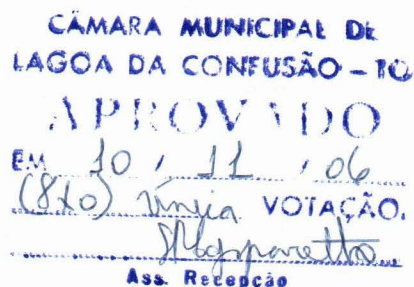 CÂMARA MUNICIPAL DE
LAGOA DA CONFUSÃO - TO
APROVADO
EM 10 / 11 / 06
(8x0) única VOTAÇÃO.
Ass. Recepção